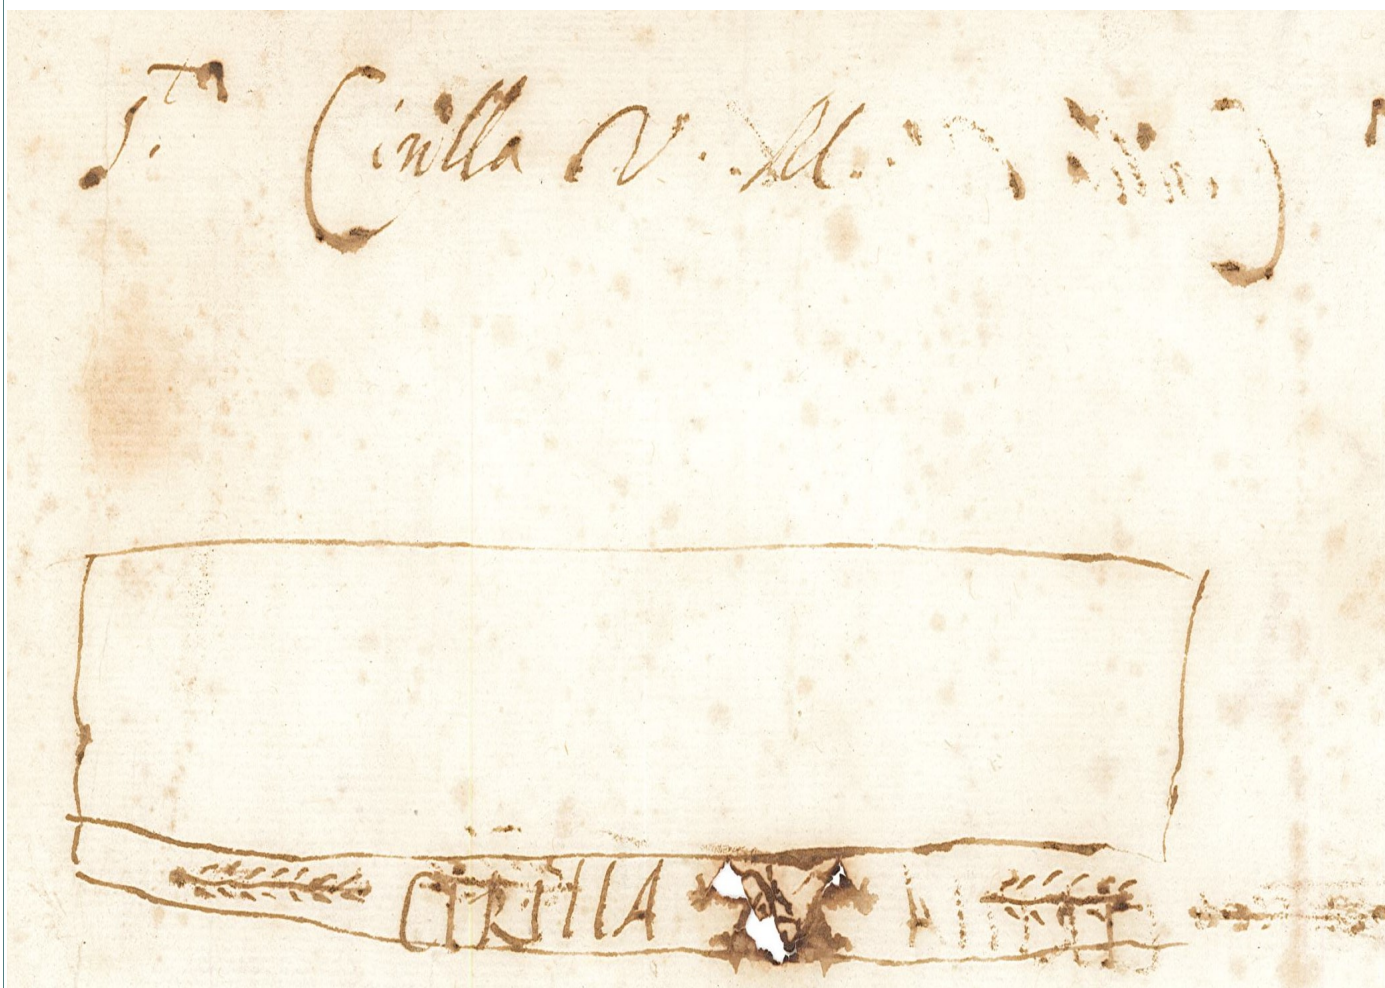 S.ta Cirilla V. M.
CIRILLA